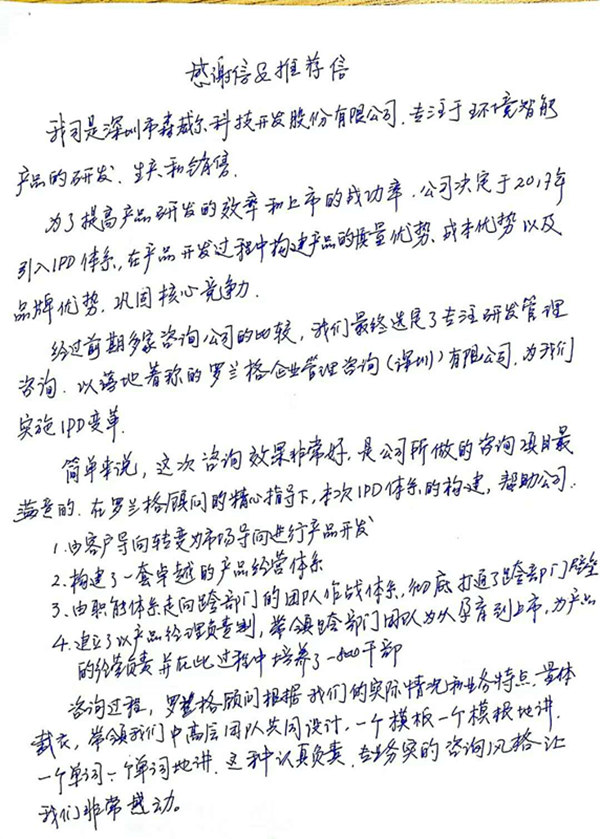 感谢信及推荐信
我司是深圳市森威尔科技开发股份有限公司.专注于环境智能
产品的研发、生产和销售.
为了提高产品研发的效率和上市的成功率.公司决定于2017年
引入IPD体系,在产品开发过程中构建产品的质量优势、成本优势以及
品牌优势.巩固核心竞争力.
经过前期多家咨询公司的比较,我们最终选定了专注研发管理
咨询.以落地著称的罗兰格企业管理咨询(深圳)有限公司.为我们
实施IPD变革.
简单来说,这次咨询效果非常好.是公司所做的咨询项目最
满意的.在罗兰格顾问的精心指导下,本次IPD体系的构建,帮助公司.
1.由客户导向转变为市场导向进行产品开发
2.构建了一套卓越的产品经营体系
3.由职能体系走向跨部门的团队作战体系,彻底打通了跨部门壁垒
4.建立了以产品经理负责制,带领跨部门团队为从孕育到上市,为产品
的经营负责并在此过程中培养了一批干部
咨询过程,罗兰格顾问根据我们的实际情况和业务特点.量体
裁衣,带领我们中高层团队共同设计.一个模板一个模板地讲.
一个单词一个单词地讲.这种认真负责.专业务实的咨询风格让
我们非常感动。